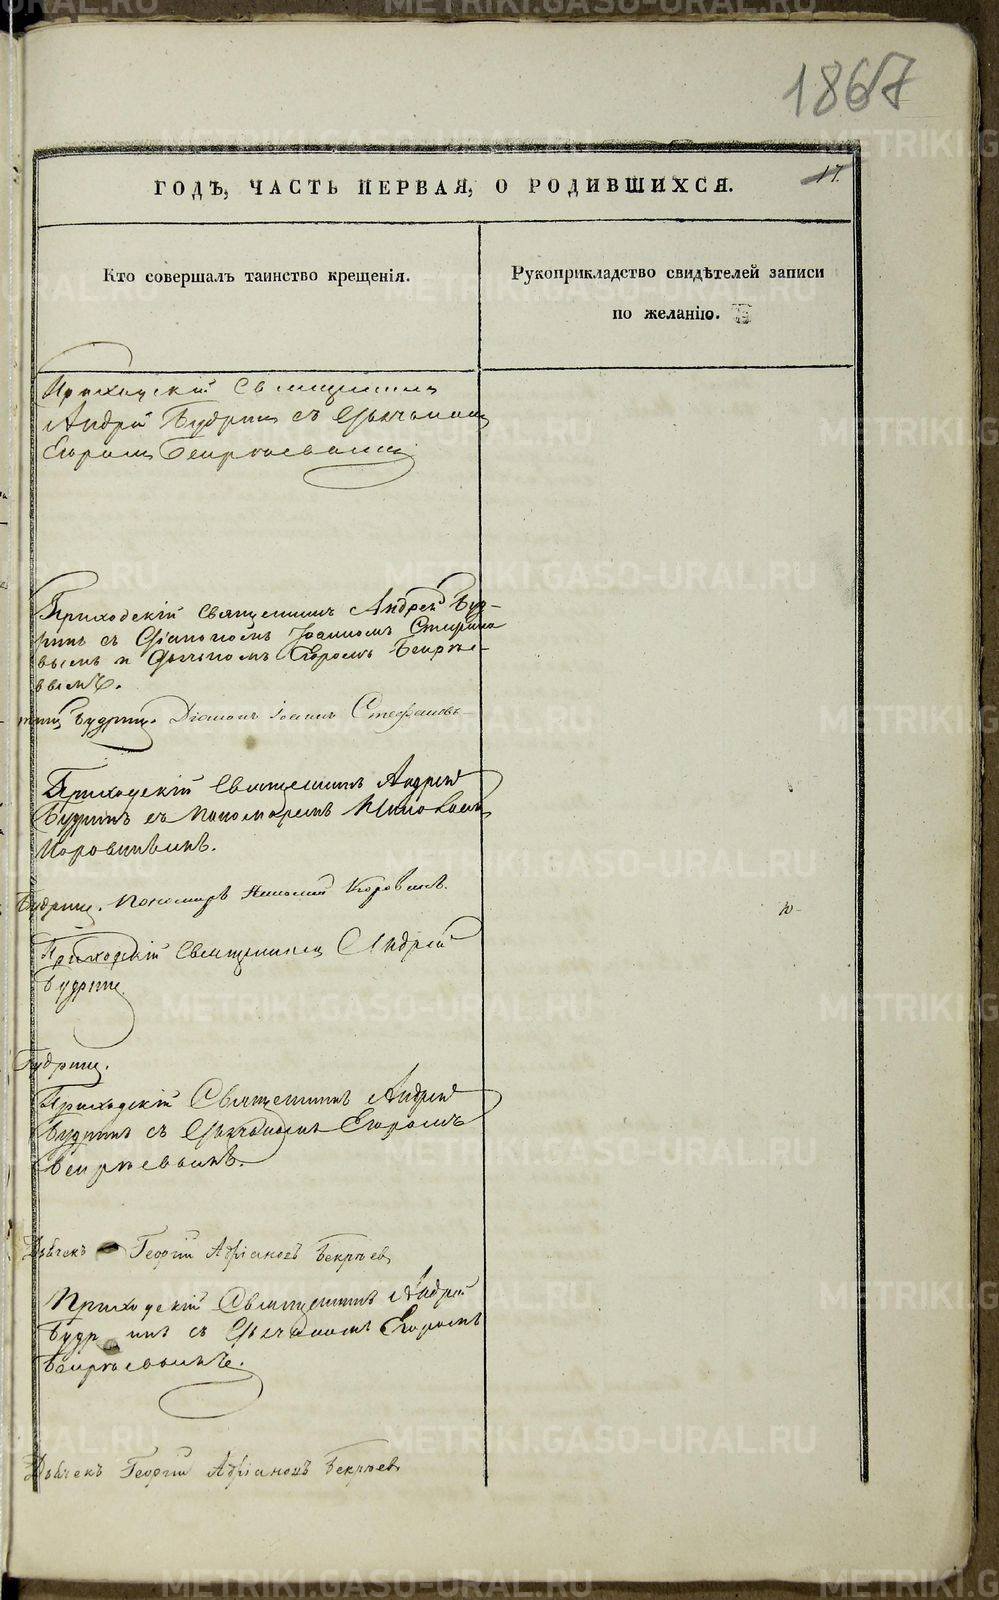 1867
17.
ГОДѢ, ЧАСТЬ ПЕРВАЯ, О РОДИВШИХСЯ.
Кто совершалъ таинство крещенія.
Рукоприкладство свидѣтелей записи
по желанію.
Приходскій Священникъ
Андрей Будринъ съ Дьячкомъ
Егоромъ Бекряевымъ
Приходскій Священникъ Андрей Буд-
ринъ съ Діакономъ Іоанномъ Стефано
вымъ и Дьячкомъ Егоромъ Бекряе-
вымъ.
Будринъ. Діаконъ Іоаннъ Стефановъ
Приходскій Священникъ Андрей
Будринъ съ Пономаремъ Николаемъ
Коровинымъ.
Будринъ. Пономарь Николай Коровинъ.
Приходскій Священникъ Андрей
Будринъ
Будринъ.
Приходскій Священникъ Андрей
Будринъ съ Дьячкомъ Егоромъ
Бекряевымъ.
Дьячекъ Георгій Адріановъ Бекряевъ
Приходскій Священникъ Андрей
Будринъ съ Дьячкомъ Егоромъ
Бекряевымъ.
Дьячекъ Георгій Адріановъ Бекряевъ
METRIKI.GASO-URAL.RU